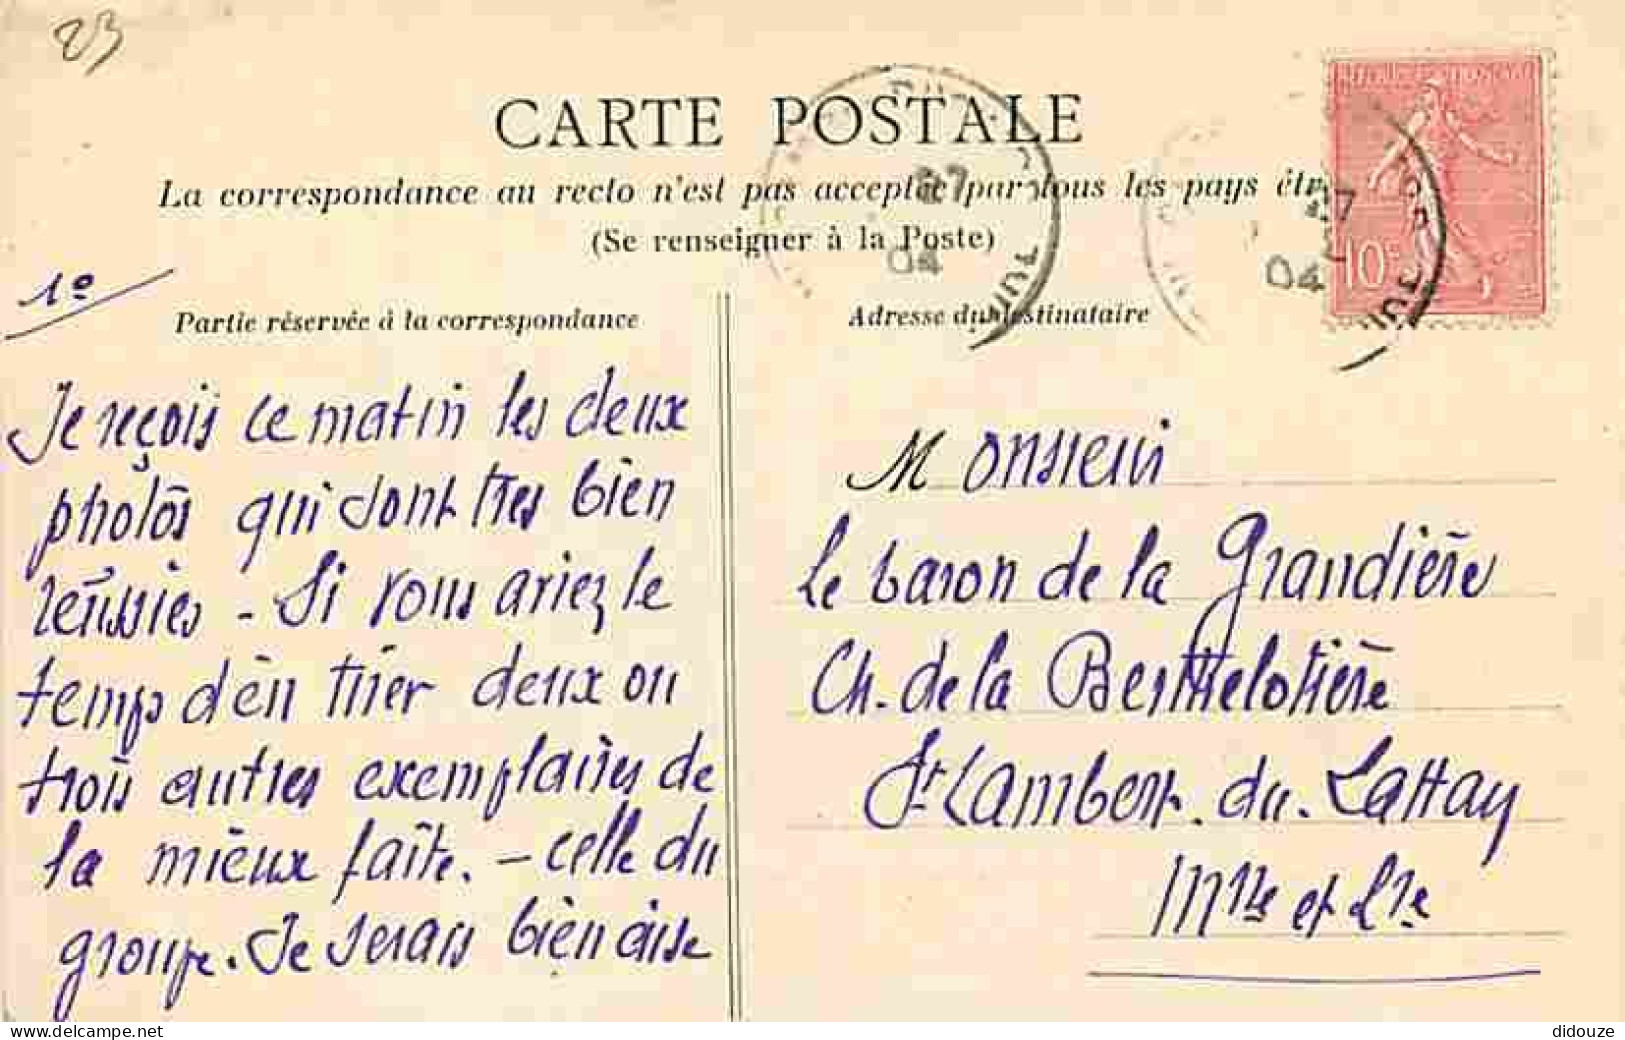 23
CARTE POSTALE
La correspondance au recto n'est pas acceptée par tous les pays étr
(Se renseigner à la Poste)
10c
27
04
27
04
1º
Partie réservée à la correspondance
Adresse du destinataire
Je reçois ce matin les deux
photos qui sont très bien
réussies - Si vous aviez le
temps d'en tirer deux ou
trois autres exemplaires de
la mieux faite. - celle du
groupe. Je serais bien aise
Monsieur
Le baron de la Grandière
Ch. de la Berthelotière
St Lambert. du. Lattay
Mne et Lre
delcampe.net
didouze